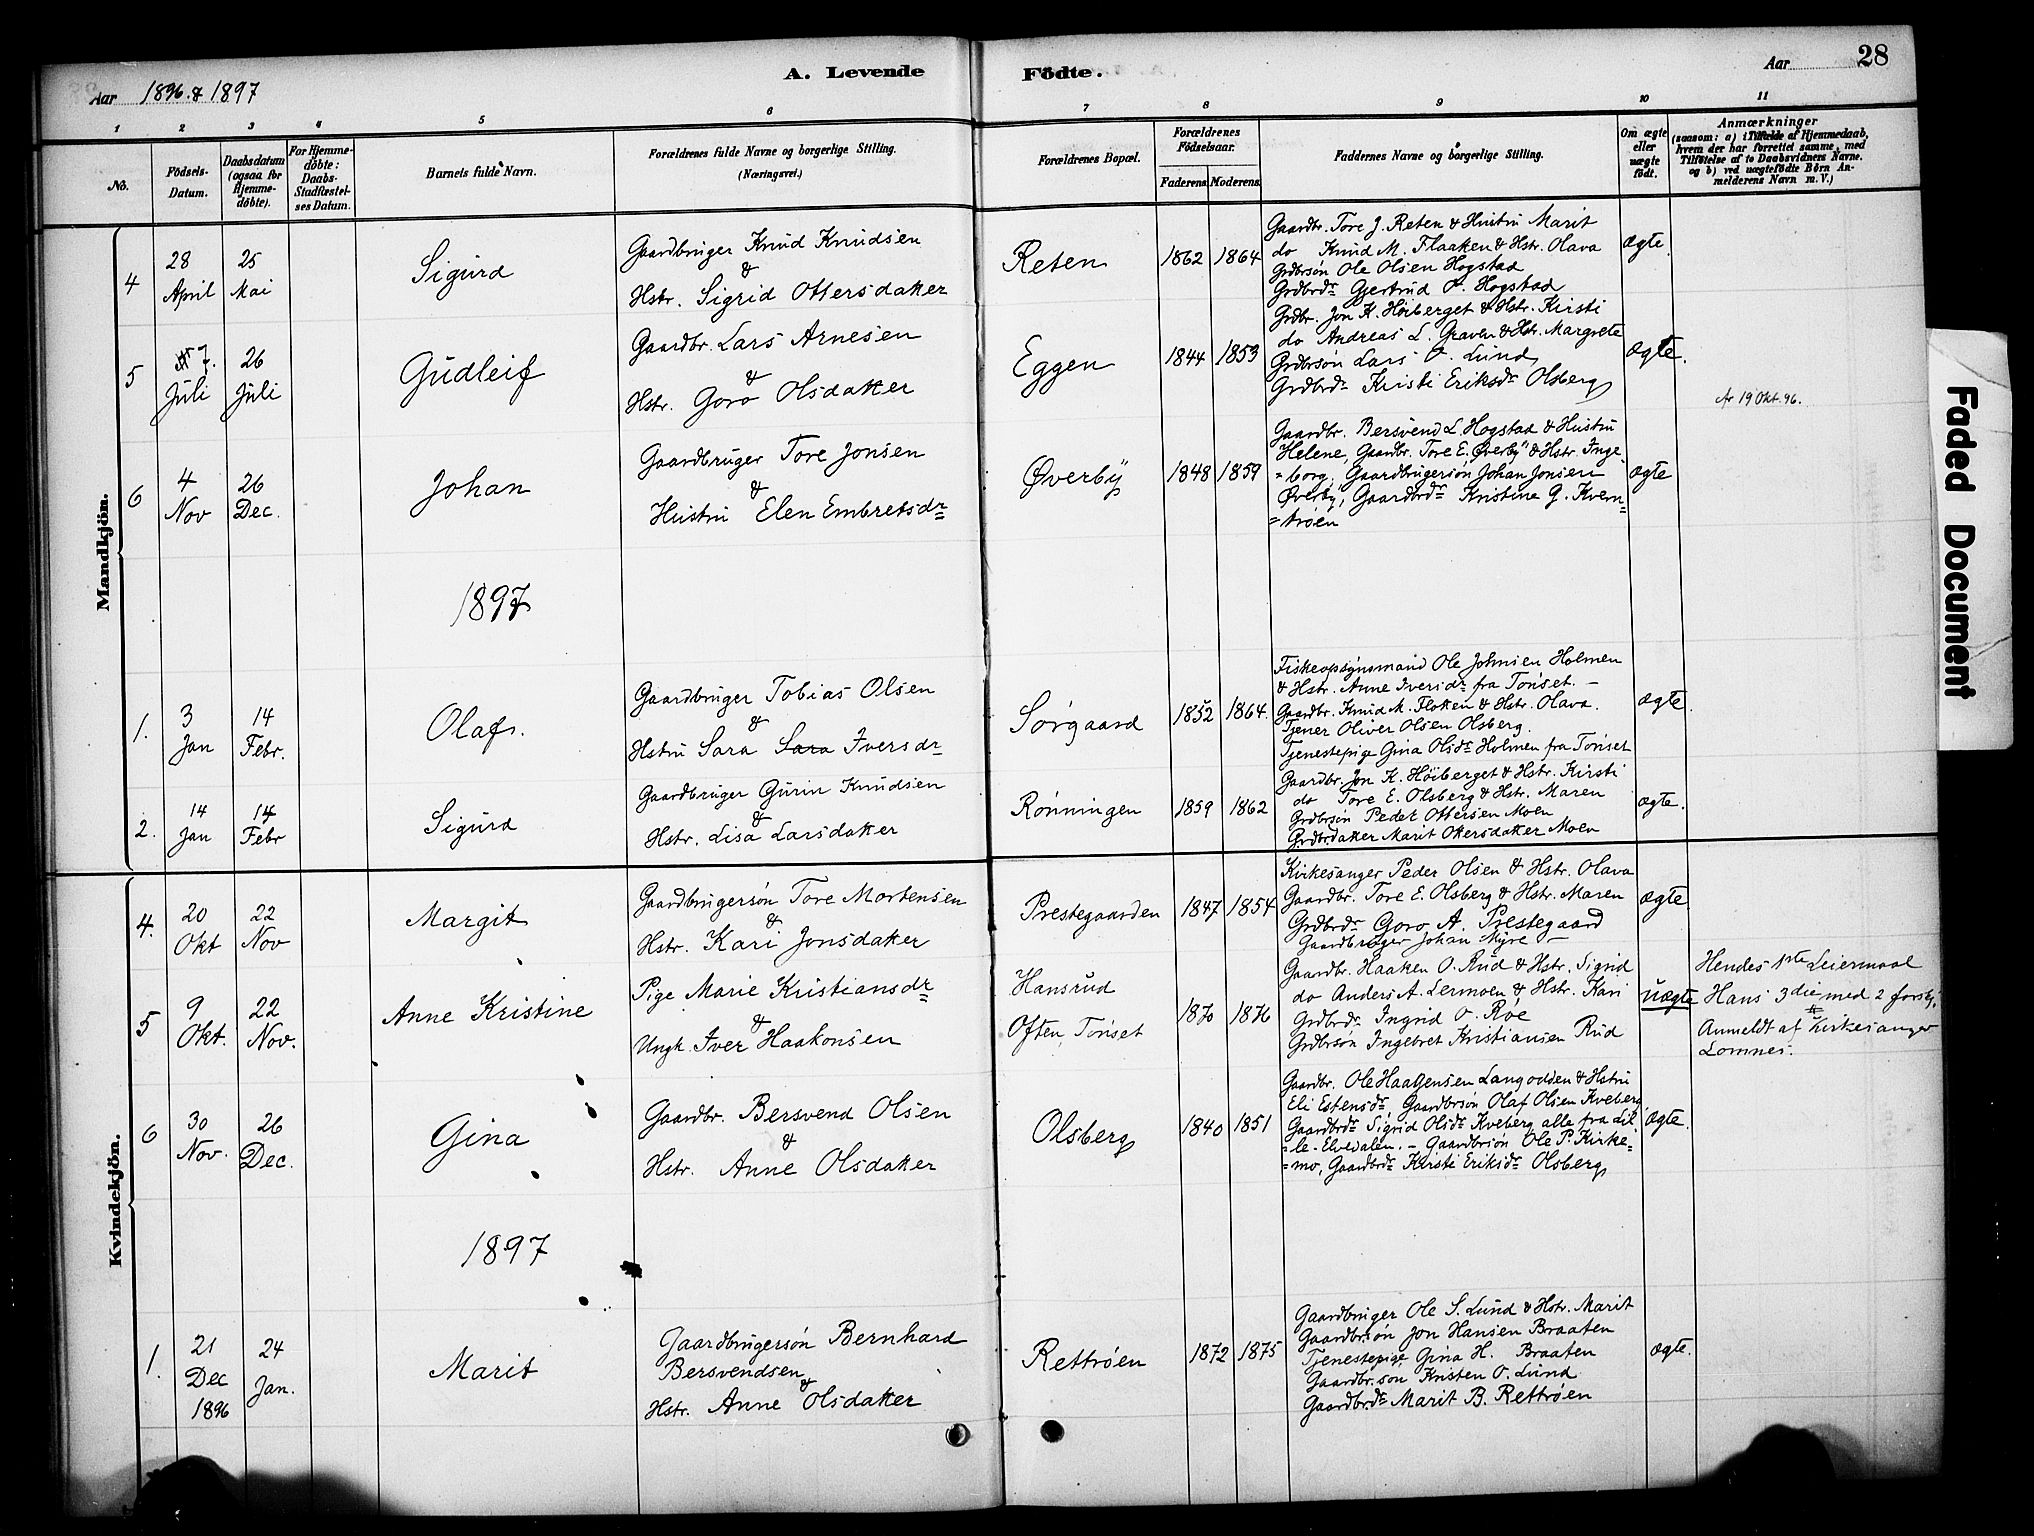 A. Levende Födte.
Aar 1896. & 1897
Aar 28
1 2 3 4 5 6 7 8 9 10 11
No.
Födsels-
Datum.
Daabsdatum
(ogsaa for
Hjemme-
döbte).
For Hjemme-
döbte:
Daabs-
Stadfæstel-
ses Datum.
Barnets fulde Navn.
Forældrenes fulde Navne og borgerlige Stilling.
(Næringsvei.)
Forældrenes Bopæl.
Forældrenes
Födselsaar.
Faderens Moderens.
Faddernes Navne og borgerlige Stilling.
Om ægte
eller
uægte
födt.
Anmærkninger
(saasom: a) i Tilfælde af Hjemmedaab,
hvem der har forrettet samme, med
Tilföielse af to Daabsvidners Navne.
og b) ved uægtefödte Börn An-
melderens Navn m. V.)
Mandkjön.
4
28
April
25
Mai
Sigurd
Gaardbruger Knud Knudsen
&
Hstr. Sigrid Ottersdatter
Reten
1862 1864
Gaardbr. Tore J. Reten & Hustru Marit
do Knud M. Flaaken & Hstr. Olava
Grdbrsön Ole Olsen Hogstad
Grdbrdr Gjertrud O. Hogstad
ægte.
5
7.
Juli
26
Juli
Gudleif
Gaardbr. Lars Arnesen
&
Hstr. Goro Olsdatter
Eggen
1844 1853
Grdbr. Jon K. Höiberget & Hstr. Kirsti
do Andreas L. Graven & Hstr. Margrete
Grdbrsön Lars O. Lund
Grdbrdr Kristi Eriksdr Olsberg
ægte.
Ar 19 Okt. 96.
6
4
Nov
26
Dec.
Johan
Gaardbruger Tore Jonsen
&
Hustru Elen Embretsdr
Øverby
1848 1859
Gaardbr. Bersvend L. Hogstad & Hustru
Helene, Gaardbr. Tore E. Øverby & Hstr. Inge-
=borg, Gaardbrugersön Johan Jonsen
Øverby, Gaardbrdr Kristine G. Kvern=
=tröen
ægte
1897
1.
3
Jan
14
Febr.
Olaf.
Gaardbruger Tobias Olsen
&
Hstru Sara Sara Iversdr
Sörgaard
1852 1864.
Fiskeopsynsmand Ole Johnsen Holmen
& Hstr. Anne Iversdr fra Tönset. –
Gaardbr. Knud M. Floken & Hstr. Olava.
Tjener Oliver Olsen Olsberg.
Tjenestepige Gina Olsdr Holmen fra Tönset
ægte.
2.
14
Jan
14
Febr
Sigurd
Gaardbruger Gurin Knudsen
&
Hstr. Lisa Larsdatter
Rönningen
1859 1862
Gaardbr. Jon K. Höiberget & Hstr. Kirsti
do Tore E. Olsberg & Hstr. Maren
Grdbrsön Peder Ottersen Moen
Grdbrdatter Marit Ottersdatter Moen
ægte.
Kvindekjön.
4.
20
Okt
22
Nov
Margit
Gaardbrugersön Tore Mortensen
&
Hstr. Kari Jonsdatter
Prestegaarden
1847 1854
Kirkesanger Peder Olsen & Hstr. Olava
Gaardbr. Tore E. Olsberg & Hstr. Maren
Grdbrdr Goro A. Prestegaard
Gaardbruger Johan Myre –
ægte.
5
9
Okt.
22
Nov.
Anne Kristine
Pige Marie Kristiansdr
&
Ungk. Iver Haakonsen
Hansrud
Often Tönset
1870 1876
Gaardbr. Haaken O. Rud & Hstr. Sigrid
do Anders A. Lermoen & Hstr. Kari
Grdbrdr Ingrid O. Röe
Grdbrsön Ingebret Kristiansen Rud
uægte
Hendes 1ste Leiermaal
Hans 3die med 2 forskj.
Anmeldt af Kirkesanger
Lomnes.
6
30
Nov.
26
Dec.
Gina
Gaardbr. Bersvend Olsen
&
Hstr. Anne Olsdatter
Olsberg
1840 1851
Gaardbr. Ole Haagensen Langodden & Hstru
Eli Estensdr, Gaardbrsön Olaf Olsen Kveberg,
Gaardbrdr Sigrid Olsdr Kveberg alle fra Lil
=le-Elvedalen. – Gaardbrsön Ole P. Kirke=
=mo, Gaardbrdr Kirsti Eriksdr Olsberg
ægte.
1897
1.
21
Dec
1896
24
Jan.
Marit
Gaardbrugersön Bernhard
Bersvendsen
&
Hstr. Anne Olsdatter
Rettröen
1872 1875
Gaardbruger Ole S. Lund & Hstr. Marit
Gaardbrsön Jon Hansen Braaten
Tjenestepige Gina H. Braaten
Gaardbr.sön Kristen O. Lund
Gaardbrdr Marit B. Rettröen
ægte.
Faded Document